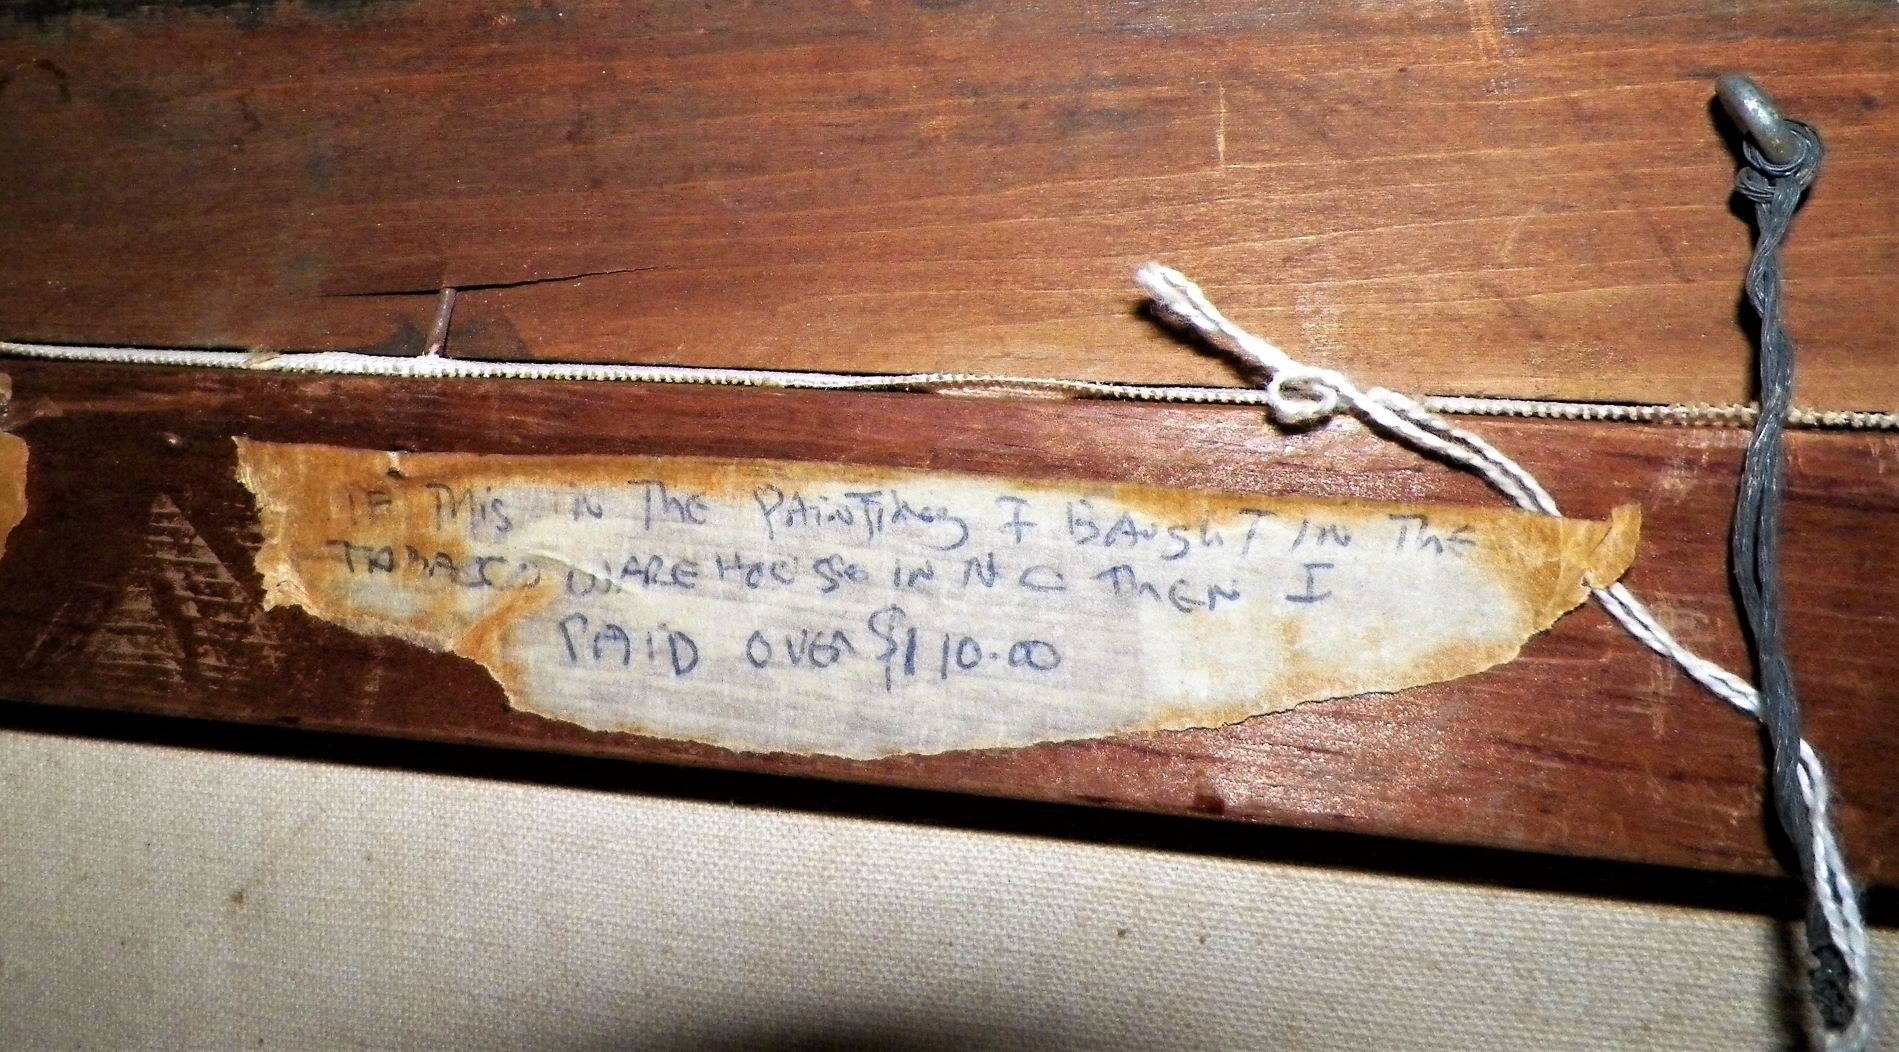 IF THis iN The PAiNTiNg I BAughT IN The
TABACCO WARE HOUSSe IN N C THEN I
PAiD OVER $110.00